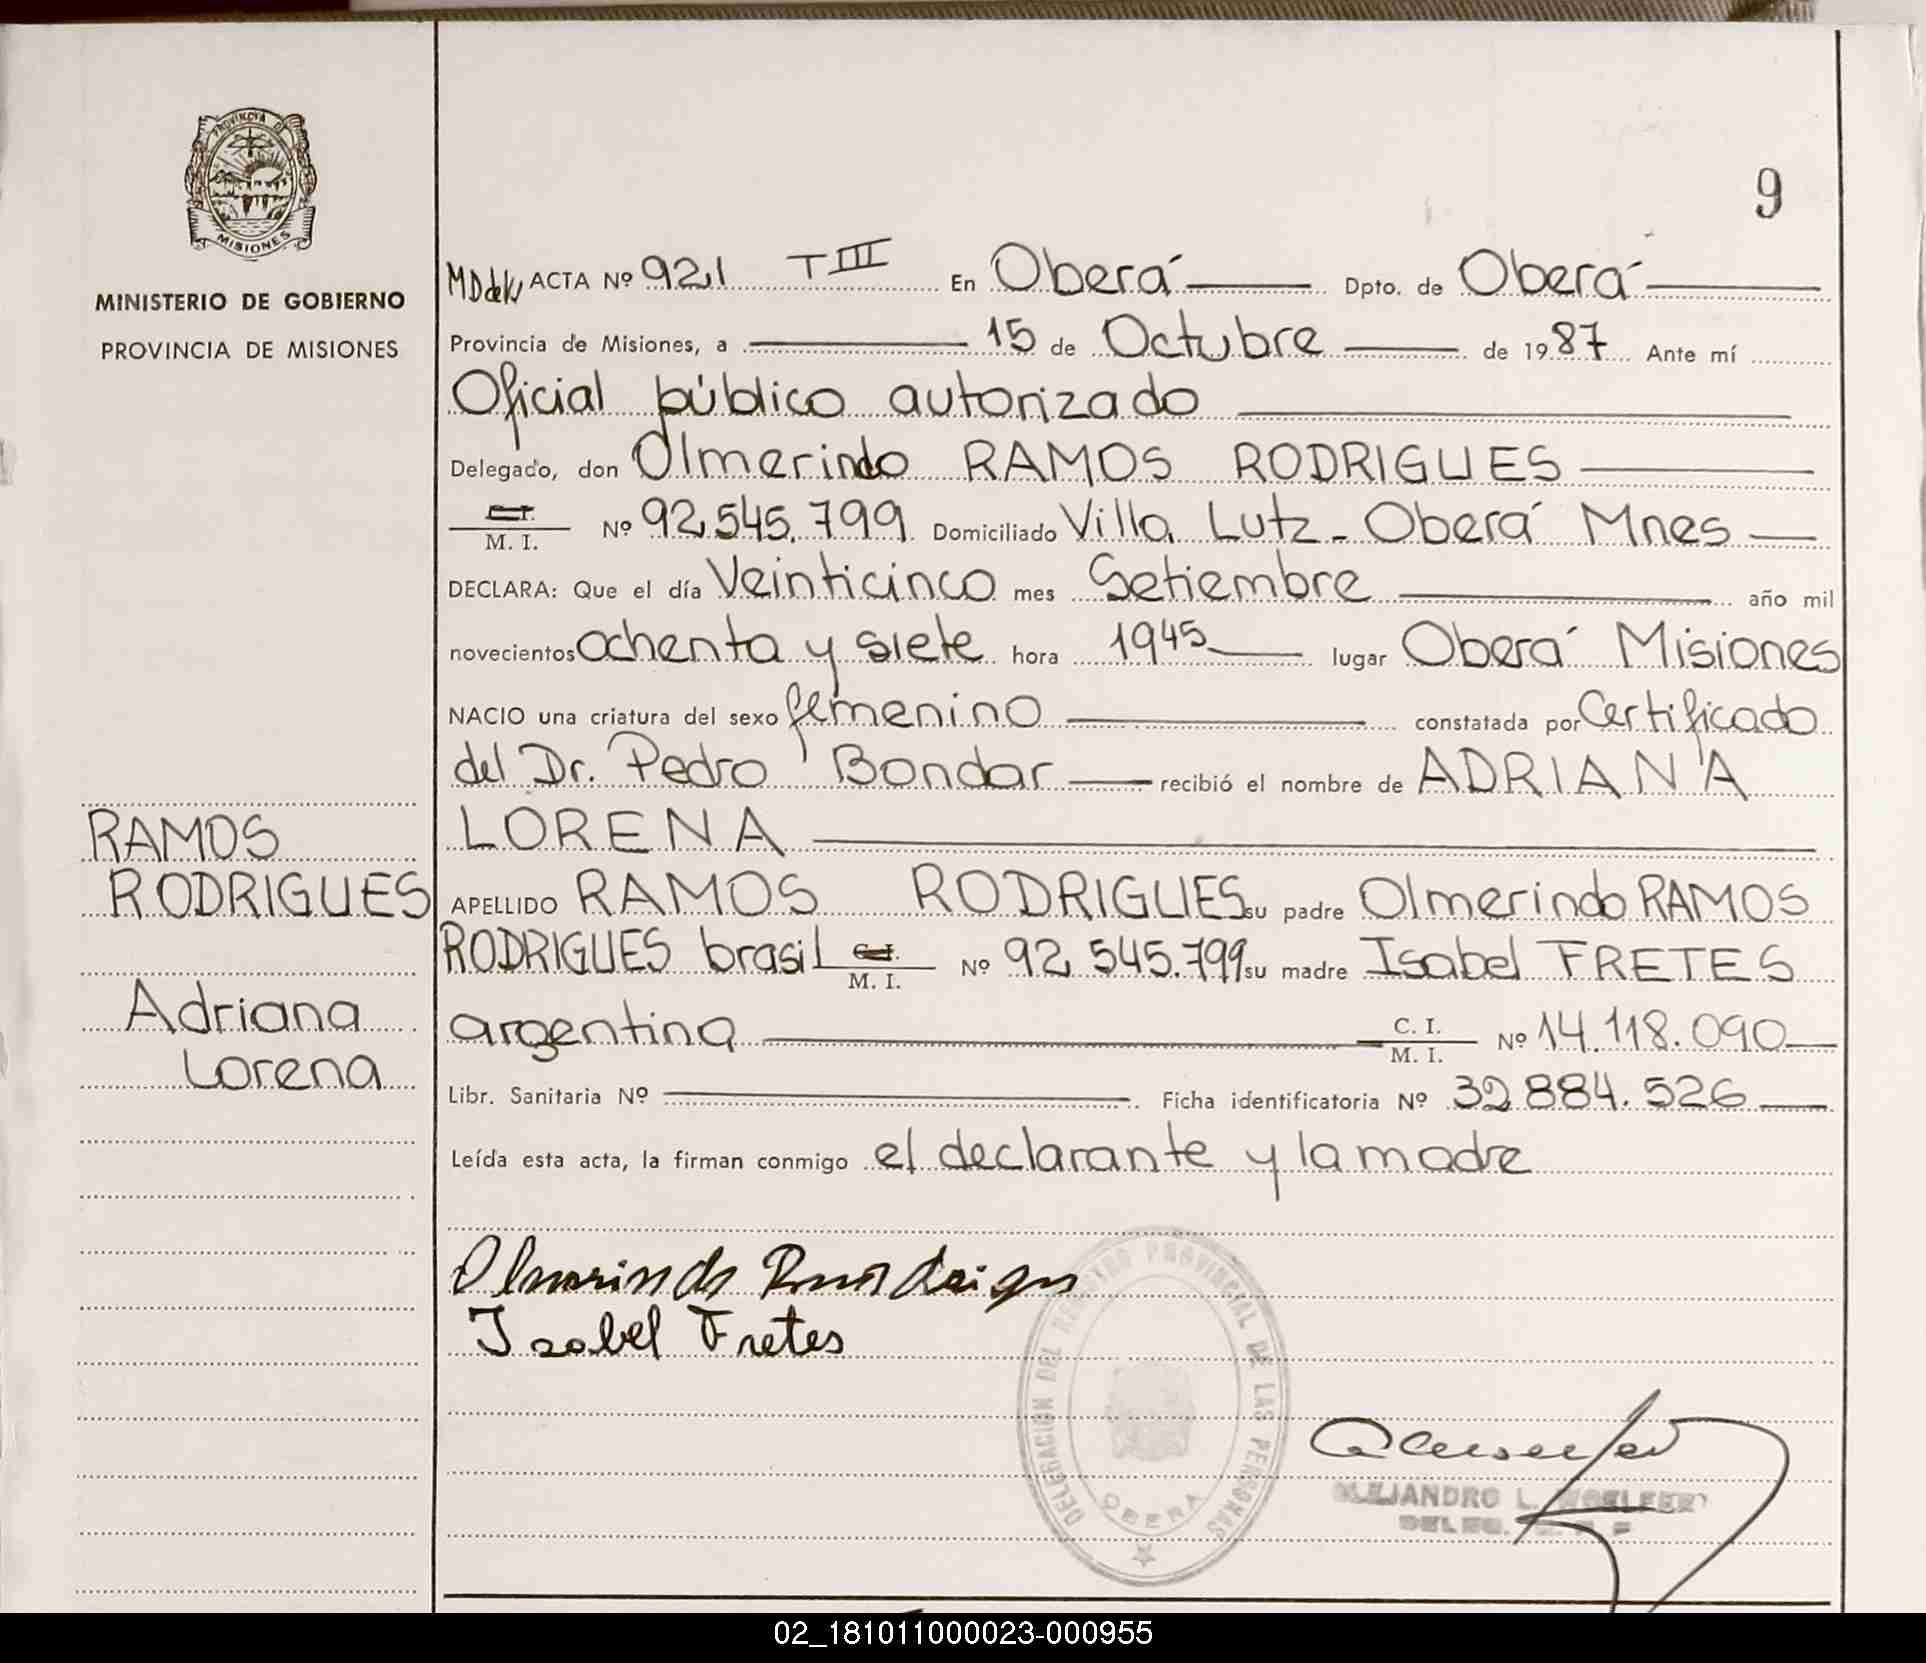 PROVINCIA DE
MISIONES
MINISTERIO DE GOBIERNO
PROVINCIA DE MISIONES
RAMOS
RODRIGUES
Adriana
Lorena
9
ACTA Nº 921 TIII En Oberá Dpto. de Oberá
Provincia de Misiones, a 15 de Octubre de 1987 Ante mí
Oficial público autorizado
Delegado, don Olmerindo RAMOS RODRIGUES
C.I.
M. I. Nº 92.545.799 Domiciliado Villa Lutz - Oberá Mnes
DECLARA: Que el día Veinticinco mes Setiembre año mil
novecientos ochenta y siete hora 1945 lugar Oberá Misiones
NACIO una criatura del sexo femenino constatada por Certificado
del Dr. Pedro Bondar recibió el nombre de ADRIANA
LORENA
APELLIDO RAMOS RODRIGUES su padre Olmerindo RAMOS
RODRIGUES brasil C.I. M. I. Nº 92.545.799 su madre Isabel FRETES
argentina C. I. M. I. Nº 14.118.090
Libr. Sanitaria Nº Ficha identificatoria Nº 32.884.526
Leída esta acta, la firman conmigo el declarante y la madre
Olmerindo Ramos
Isabel Fretes
DELEGACIÓN DEL REGISTRO PROVINCIAL DE LAS PERSONAS
OBERA
ALEJANDRO L.
02_181011000023-000955